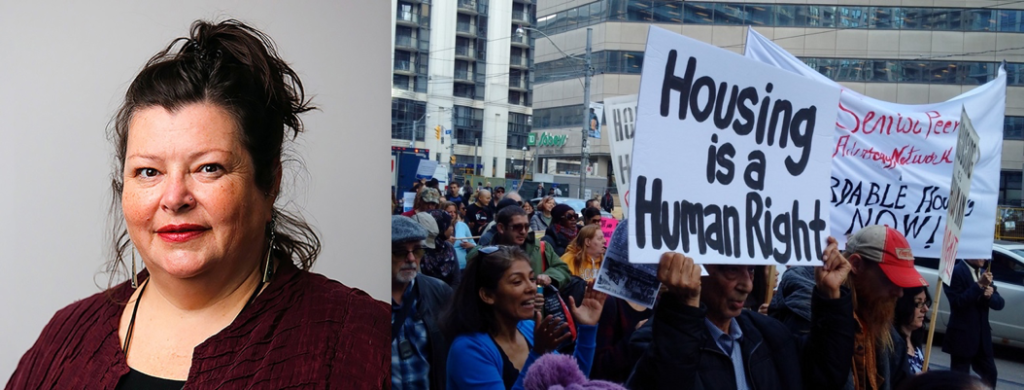 Housing
is a
Human Right
HO
Senior Peer
Advocacy Network
RDABLE HOUSING
NOW!